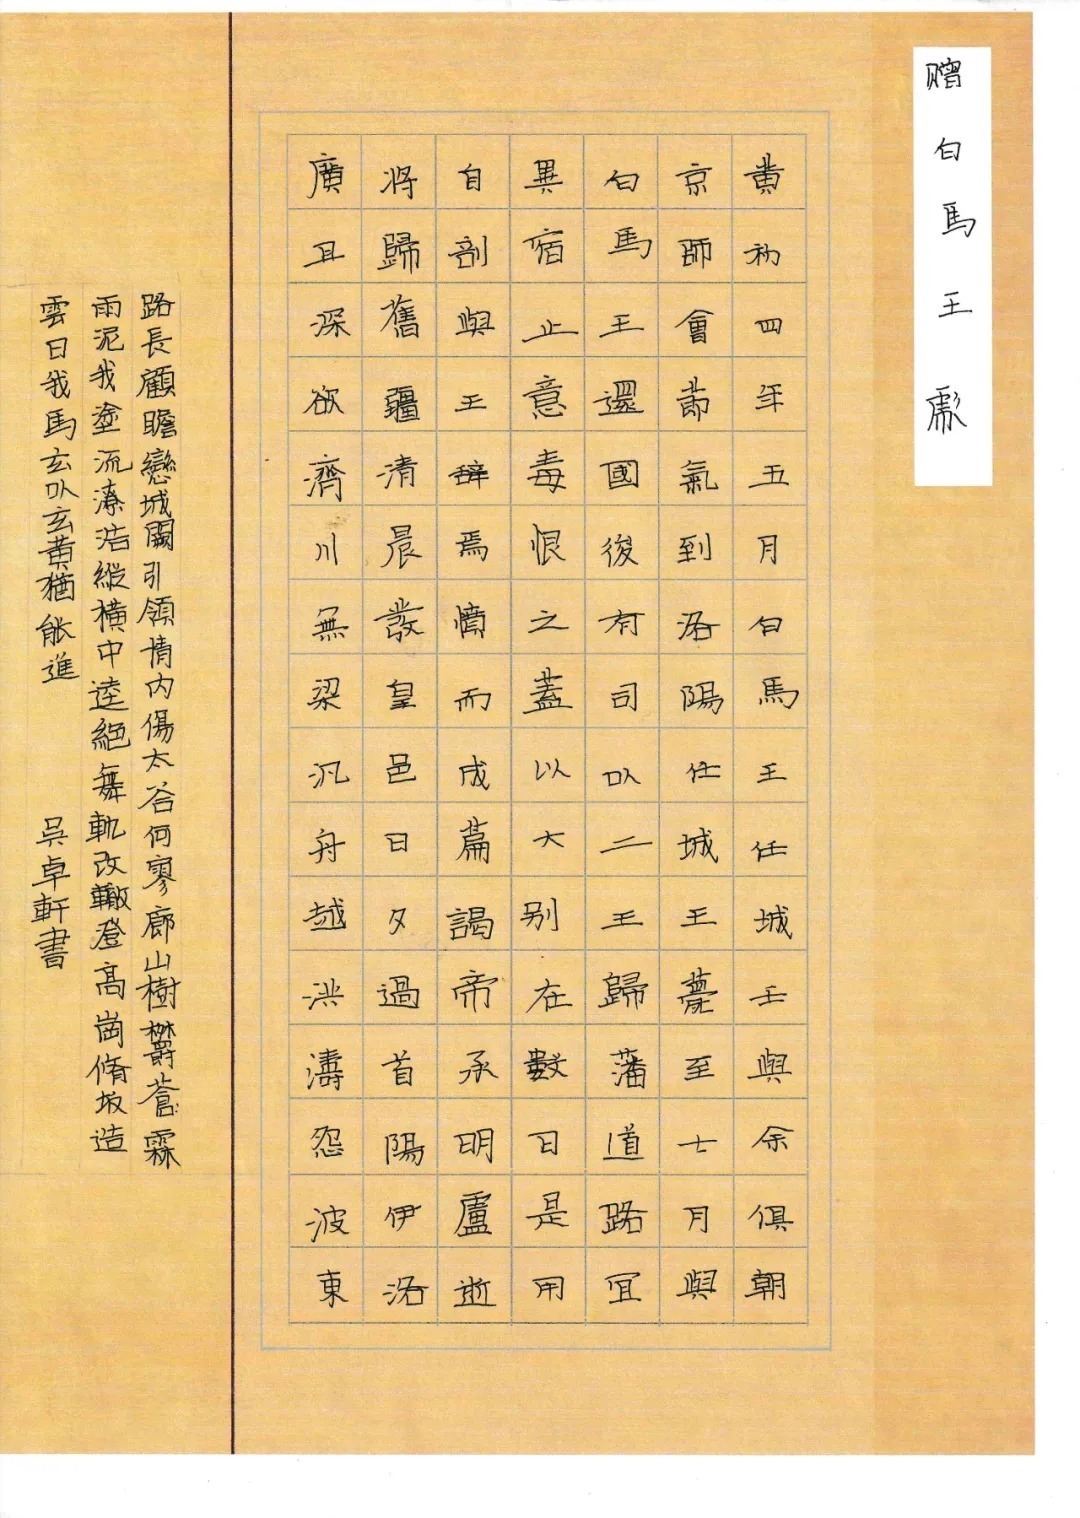 贈白馬王彪
黃初四年五月白馬王任城王與余俱朝
京師會節氣到洛陽任城王薨至七月與
白馬王還國後有司以二王歸藩道路宜
異宿止意毒恨之蓋以大別在數日是用
自剖與王辭焉憤而成篇謁帝承明廬逝
將歸舊疆清晨發皇邑日夕過首陽伊洛
廣且深欲濟川無梁汎舟越洪濤怨波東
路長顧瞻戀城闕引領情內傷太谷何寥廓山樹鬱蒼霖
雨泥我塗流潦浩縱橫中逵絕無軌改轍登高崗脩坂造
雲日我馬玄以玄黃猶能進
吳卓軒書